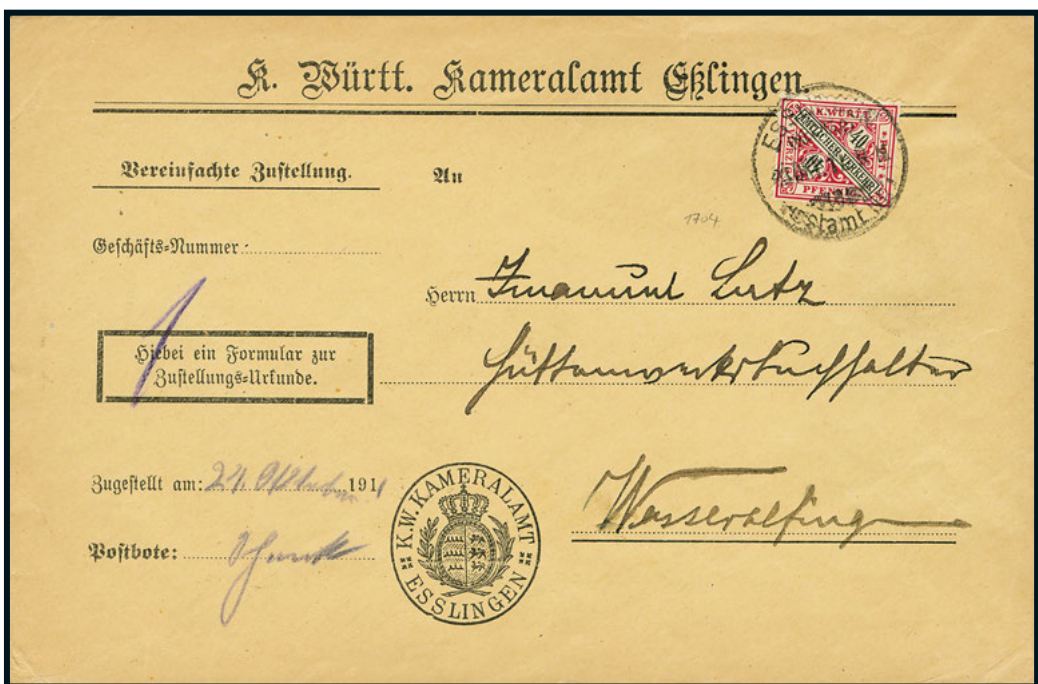 K. Württ. Kameralamt Eßlingen.
K. WÜRTT.
AMTLICHER VERKEHR
40
40
PFENNIG
Vereinfachte Zustellung.
An
1704
Geschäfts-Nummer:
Herrn Immanuel Lutz
Hiebei ein Formular zur
Zustellungs-Urkunde.
Hüttenwerksbuchhalter
Zugestellt am: 21. Oktober 1911
Wasseralfingen
Postbote:
K.W. KAMERALAMT
ESSLINGEN